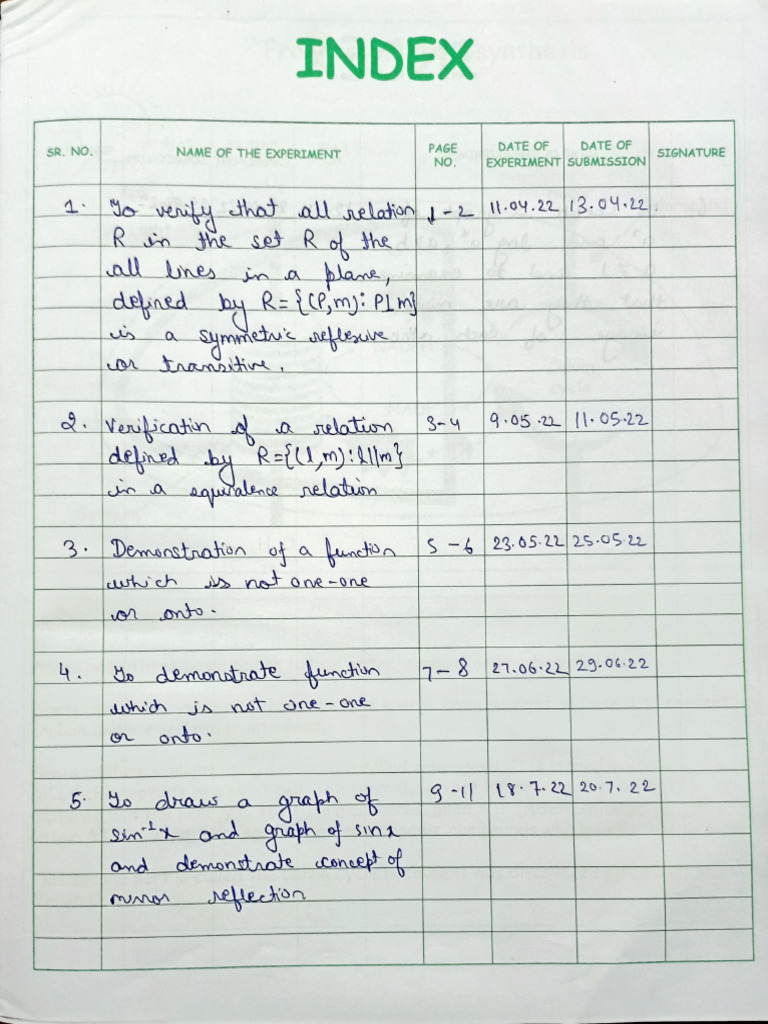 INDEX
SR. NO. NAME OF THE EXPERIMENT PAGE NO. DATE OF EXPERIMENT DATE OF SUBMISSION SIGNATURE
1. To verify that all relation 1-2 11.04.22 13.04.22.
R in the set R of the
all lines in a plane,
defined by R={(P,m): P⊥m}
is a symmetric reflexive
or transitive.
2. Verification of a relation 3-4 9.05.22 11.05.22
defined by R={(l,m):l||m}
in a equivalence relation
3. Demonstration of a function 5-6 23.05.22 25.05.22
which is not one-one
or onto.
4. To demonstrate function 7-8 27.06.22 29.06.22
which is not one-one
or onto.
5. To draw a graph of 9-11 18.7.22 20.7.22
sin⁻¹x and graph of sinx
and demonstrate concept of
mirror reflection